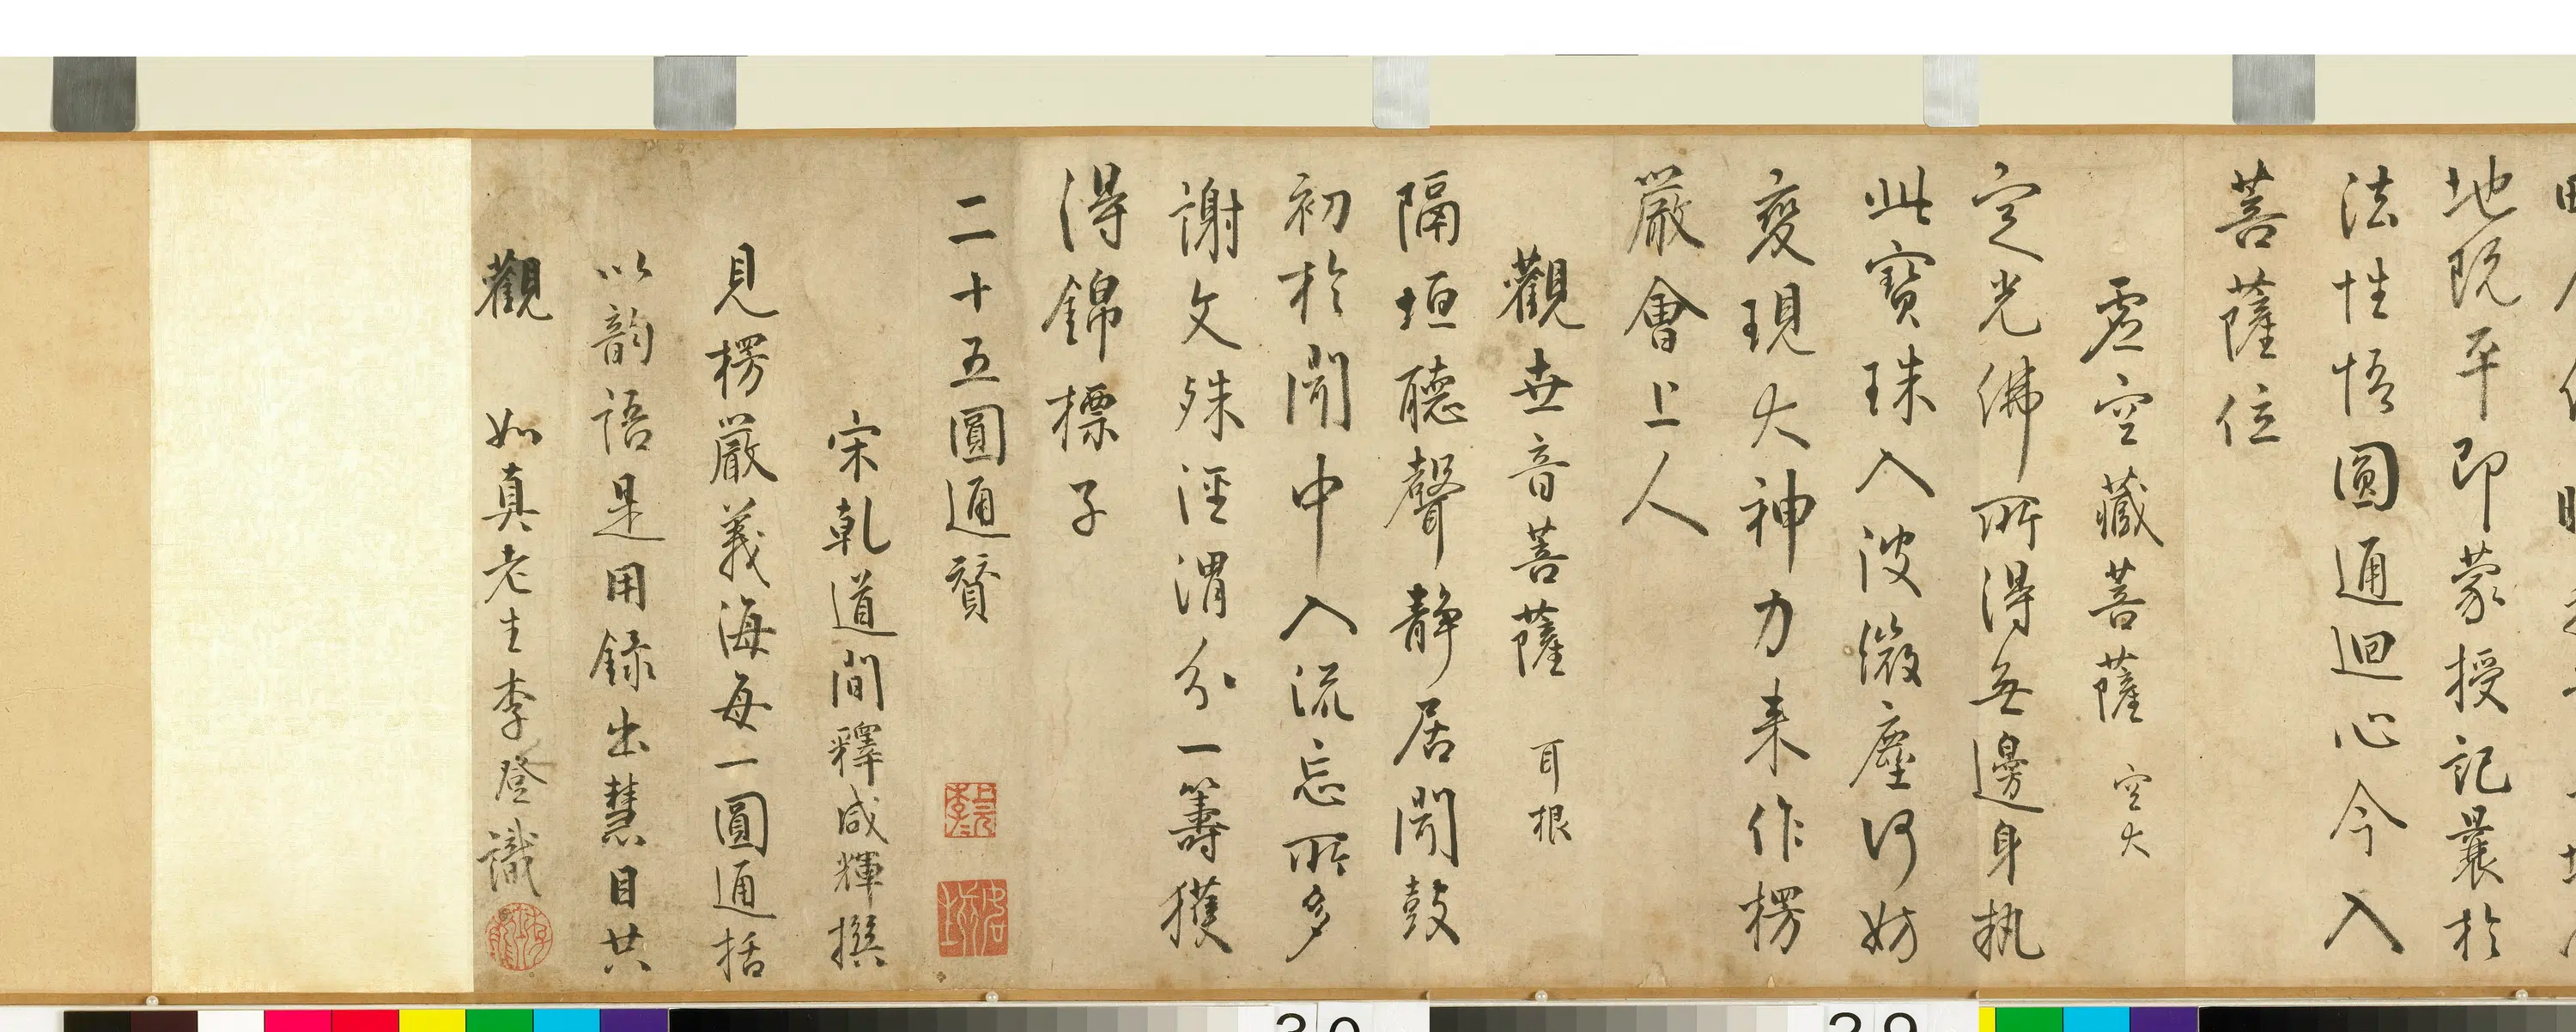 地既平即蒙授記曩於
法性悟圓通迴心今入
菩薩位
虛空藏菩薩 空大
定光佛所得無邊身執
此寶珠入彼微塵何妨
變現大神力來作楞
嚴會上人
觀世音菩薩 耳根
隔垣聽聲靜居聞鼓
初於聞中入流忘所多
謝文殊涇渭分一籌獲
得錦標子
二十五圓通贊
宋乾道間釋咸輝撰
見楞嚴義海每一圓通括
以韵語是用錄出慧目共
觀 如真老生李登識
30
29